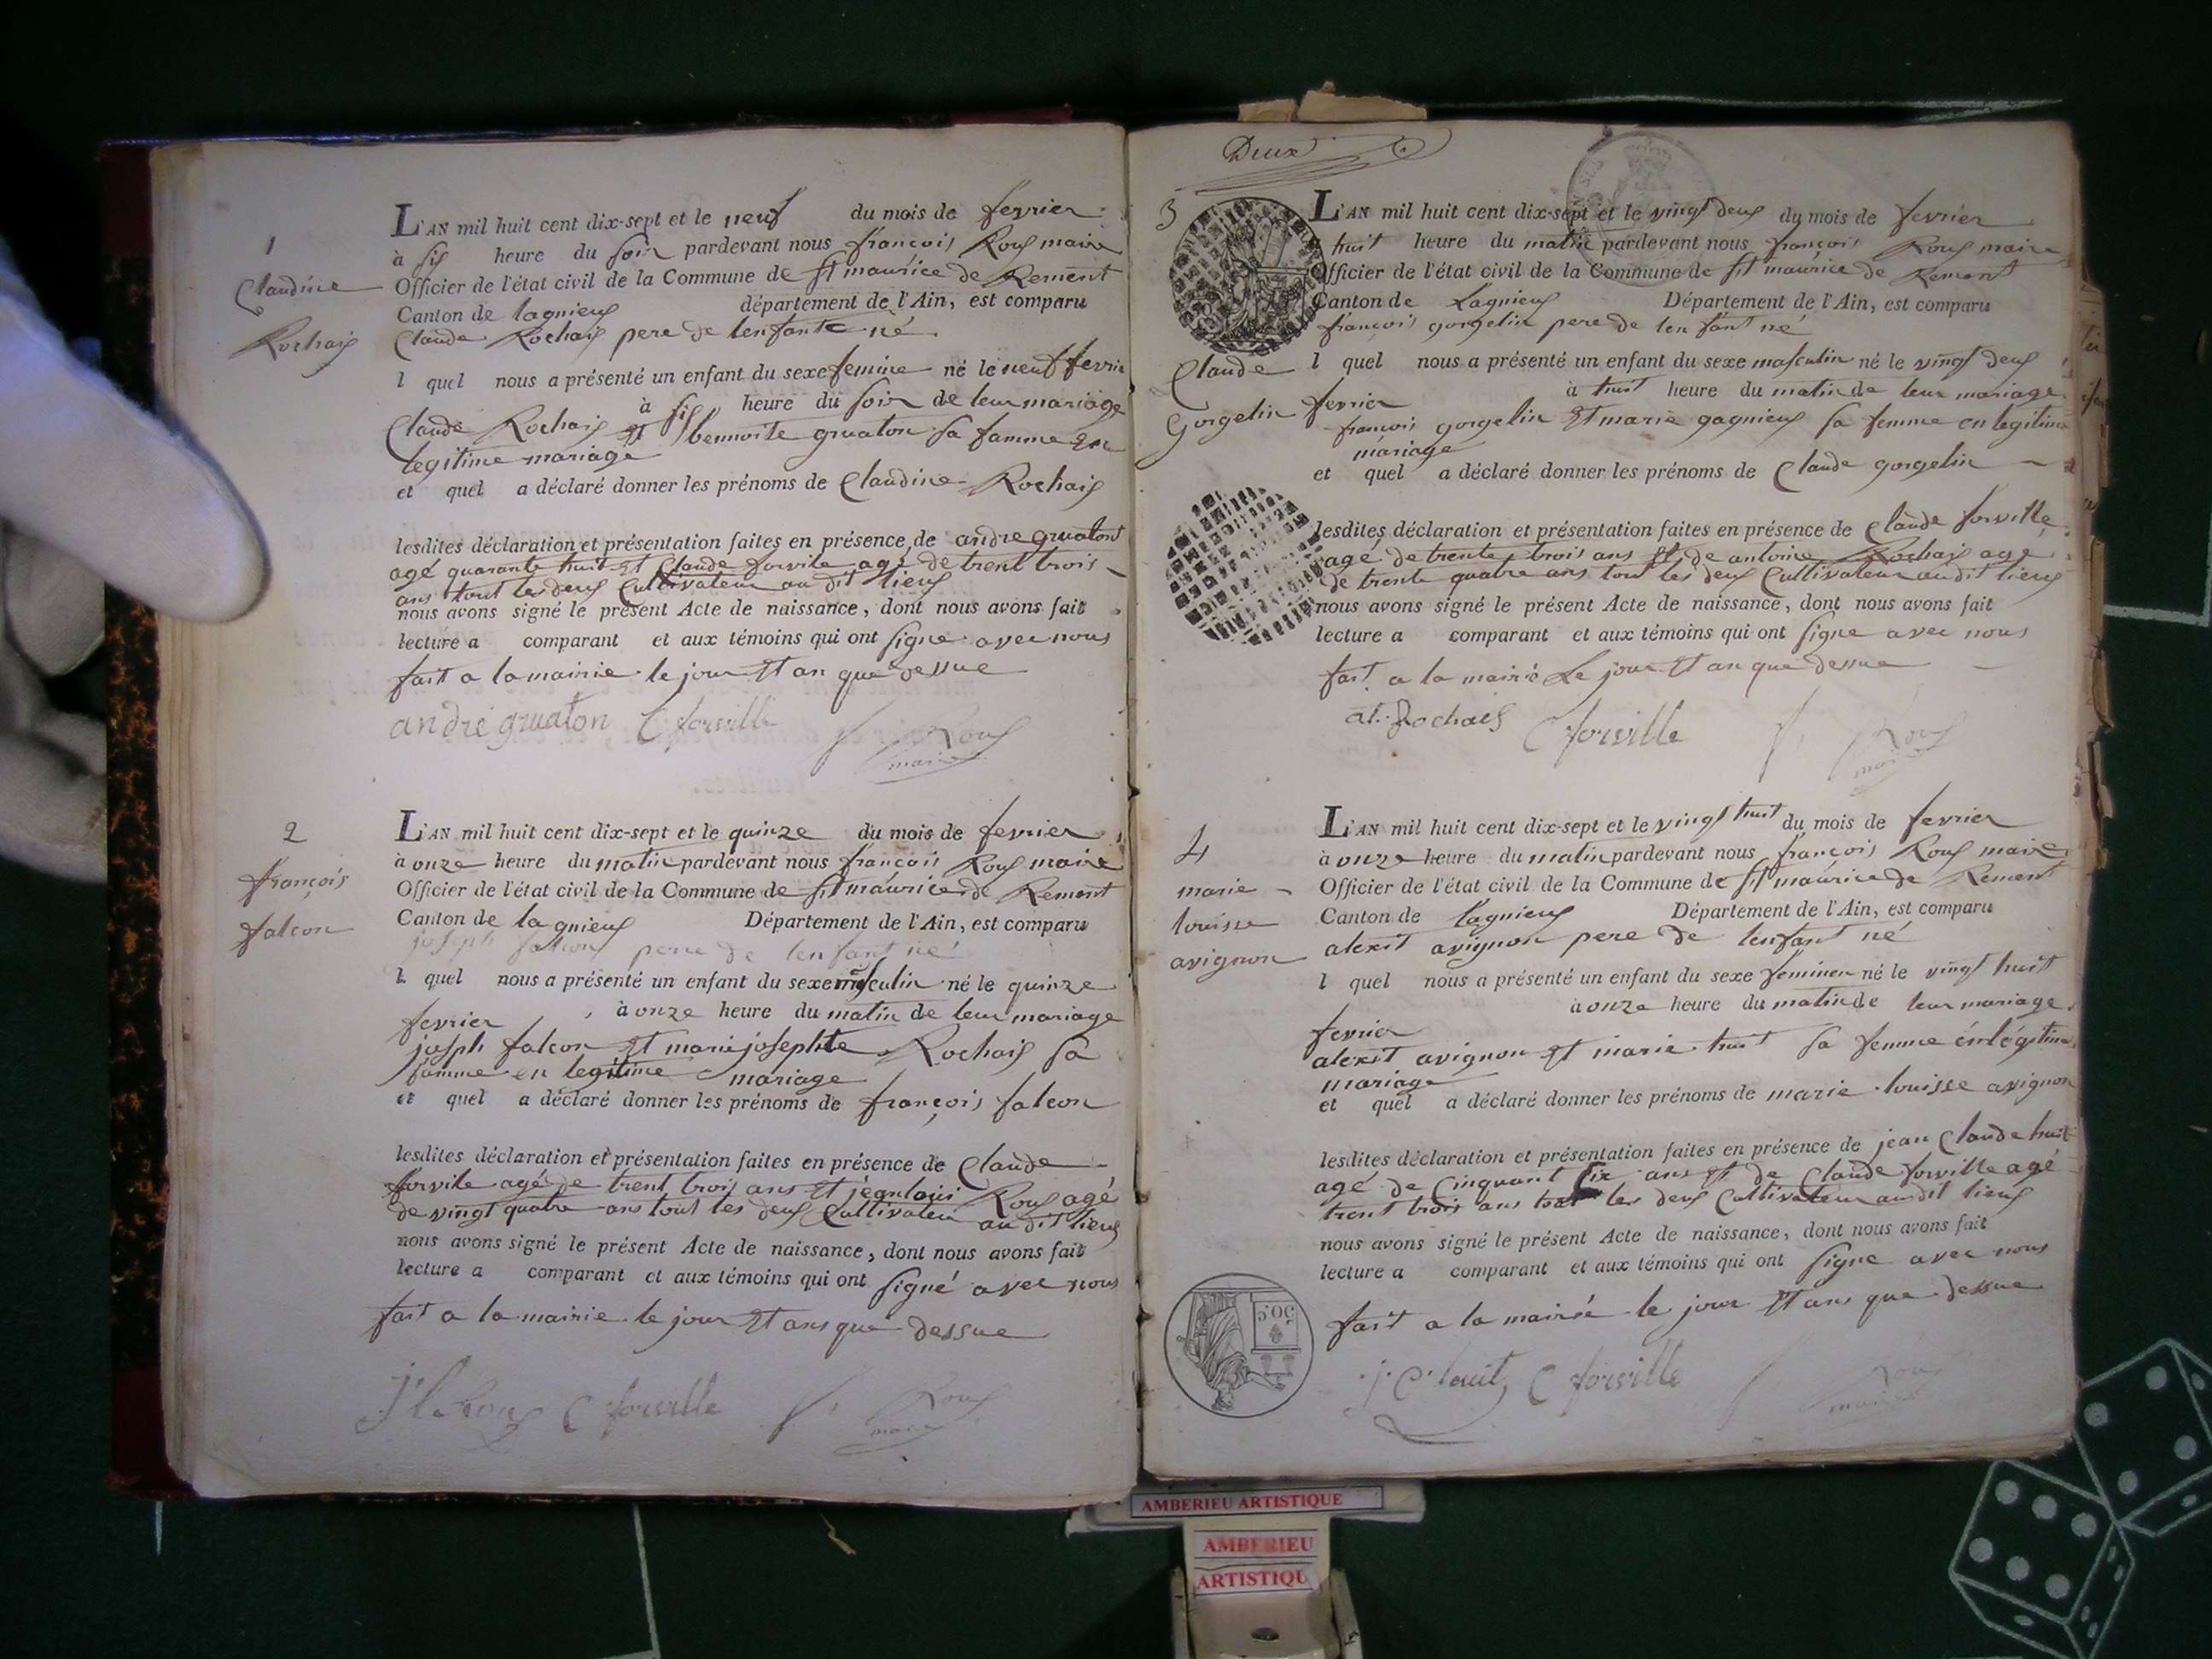 1
Claudine
Rochaix
L'AN mil huit cent dix-sept et le neuf du mois de fevrier
à six heure du soir pardevant nous françois Roux maire
Officier de l'état civil de la Commune de st maurice de Rement
Canton de lagnieux département de l'Ain, est comparu
Claude Rochaix pere de lenfante né
l quel nous a présenté un enfant du sexe femine né le neuf fevrie
à six heure du soir de leur mariage
Claude Rochaix et bennoite gruaton sa famme en
legitime mariage
et quel a déclaré donner les prénoms de Claudine Rochaix
lesdites déclaration et présentation faites en présence de andre gruaton
agé quarante huit et Claude forvile agé de trent trois
ans tout les deux Cultivateur au dit lieux
nous avons signé le présent Acte de naissance, dont nous avons fait
lecture a comparant et aux témoins qui ont signe avec nous
fait a la mairie le jour et an que dessue
andré gruaton C forville Roux
maire
2
françois
falcon
L'AN mil huit cent dix-sept et le quinze du mois de fevrier
à onze heure du matin pardevant nous françois Roux maire
Officier de l'état civil de la Commune de st maurice de Rement
Canton de lagnieux Département de l'Ain, est comparu
joseph falcon pere de lenfant né
l quel nous a présenté un enfant du sexe masculin né le quinze
fevrier à onze heure du matin de leur mariage
joseph falcon et marie josephte Rochaix sa
famme en legitime mariage
et quel a déclaré donner les prénoms de françois falcon
lesdites déclaration et présentation faites en présence de Claude
forvile agé de trent trois ans et jean loui Roux agé
de vingt quatre ans tout les deux Cultivateur au dit lieux
nous avons signé le présent Acte de naissance, dont nous avons fait
lecture a comparant et aux témoins qui ont signé avec nous
fait a la mairie le jour et ans que dessue
j l Roux C forville Roux
maire
Deux
3
Claude
Gorgelin
L'AN mil huit cent dix-sept et le vingt deux du mois de fevrier
huit heure du matin pardevant nous françois Roux maire
Officier de l'état civil de la Commune de st maurice de Rement
Canton de Lagnieux Département de l'Ain, est comparu
françois gorgelin pere de len fant né
l quel nous a présenté un enfant du sexe masculin né le vingt deux
fevrier à huit heure du matin de leur mariage
françois gorgelin et marie gagnieux sa femme en legitime
mariage
et quel a déclaré donner les prénoms de Claude gorgelin
lesdites déclaration et présentation faites en présence de Claude forville
agé de trente trois ans et de antoine Rochaix agé
de trente quatre ans tout les deux Cultivateur au dit lieux
nous avons signé le présent Acte de naissance, dont nous avons fait
lecture a comparant et aux témoins qui ont signe avec nous
fait a la mairié Le jour et an que dessue
at. Rochaix C forville Roux
maire
4
marie
louisse
avignon
L'AN mil huit cent dix-sept et le vingt huit du mois de fevrier
à onze heure du matin pardevant nous françois Roux maire
Officier de l'état civil de la Commune de st maurice de Rement
Canton de lagnieux Département de l'Ain, est comparu
alexit avignon pere de lenfant né
l quel nous a présenté un enfant du sexe feminen né le vingt huit
fevrier à onze heure du matin de leur mariage
alexit avignon et marie huit sa femme en légitime
mariage
et quel a déclaré donner les prénoms de marie louisse avignon
lesdites déclaration et présentation faites en présence de jean Claude huit
agé de Cinquant six ans et de Claude forville agé
trent trois ans tout les deux Cultivateur au dit lieux
nous avons signé le présent Acte de naissance, dont nous avons fait
lecture a comparant et aux témoins qui ont signe avec nous
fait a la mairié le jour et ans que dessue
j C huit C forville Roux
maire
50.C
AMBERIEU ARTISTIQUE
AMBERIEU
ARTISTIQU